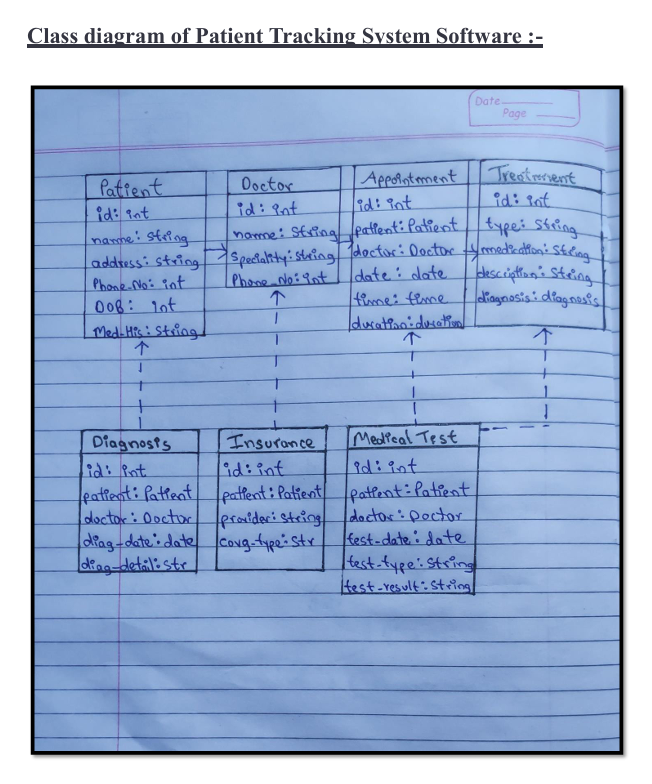 Class diagram of Patient Tracking System Software :-
Date
Page
Patient
id: int
name: String
address: String
Phone-No: int
DOB: int
Med-His: String
Doctor
id: int
name: String
Speciality: String
Phone_No: int
Appointment
id: int
patient: Patient
doctor: Doctor
date: date
time: time
duration: duration
Treatment
id: int
type: String
medication: String
description: String
diagnosis: diagnosis
Diagnosis
id: int
patient: Patient
doctor: Doctor
diag-date: date
diag-detail: str
Insurance
id: int
patient: Patient
provider: String
covg-type: Str
Medical Test
id: int
patient: Patient
doctor: Doctor
test-date: date
test-type: String
test-result: String